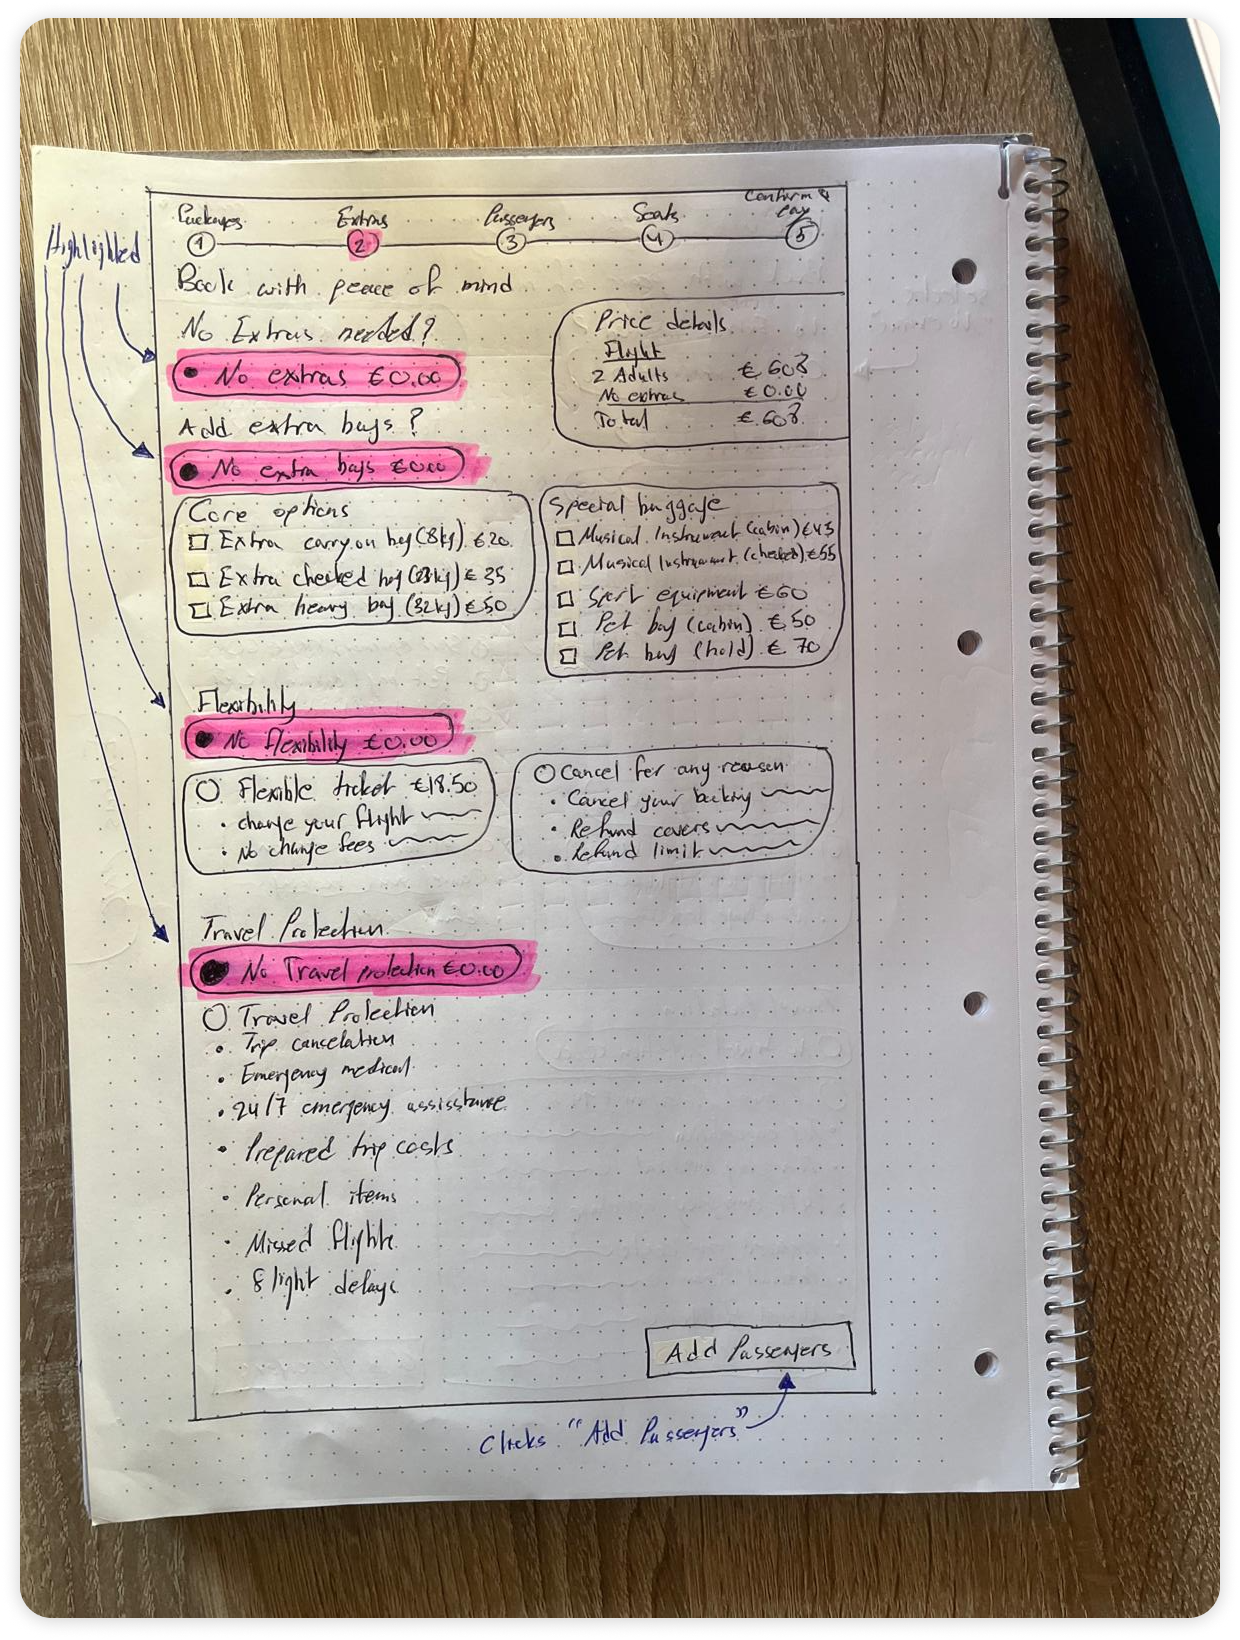 Packages Extras Passengers Seats Confirm & pay
1 2 3 4 5
Highlighted
Book with peace of mind
No Extras needed?
No extras €0.00
Price details
Flight
2 Adults €608
No extras €0.00
Total €608
Add extra bags?
No extra bags €0.00
Core options
Extra carry on bag (8kg) €20
Extra checked bag (23kg) €35
Extra heavy bag (32kg) €50
Special baggage
Musical Instrument (cabin) €45
Musical Instrument (checked) €55
Sport equipment €60
Pet bag (cabin) €50
Pet bag (hold) €70
Flexibility
No flexibility €0.00
Flexible ticket €18.50
• change your flight
• No change fees
Cancel for any reason
• Cancel your booking
• Refund covers
• Refund limit
Travel Protection
No Travel protection €0.00
Travel Protection
• Trip cancelation
• Emergency medical
• 24/7 emergency assisstance
• Prepared trip costs
• Personal items
• Missed flights
• flight delays
Add Passengers
Clicks "Add Passengers"